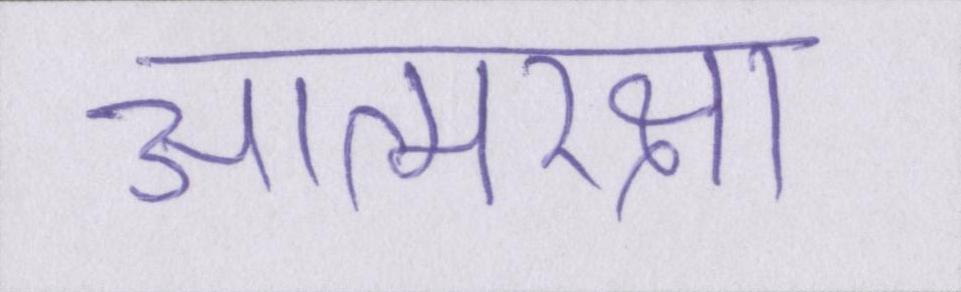 आत्मरक्षा